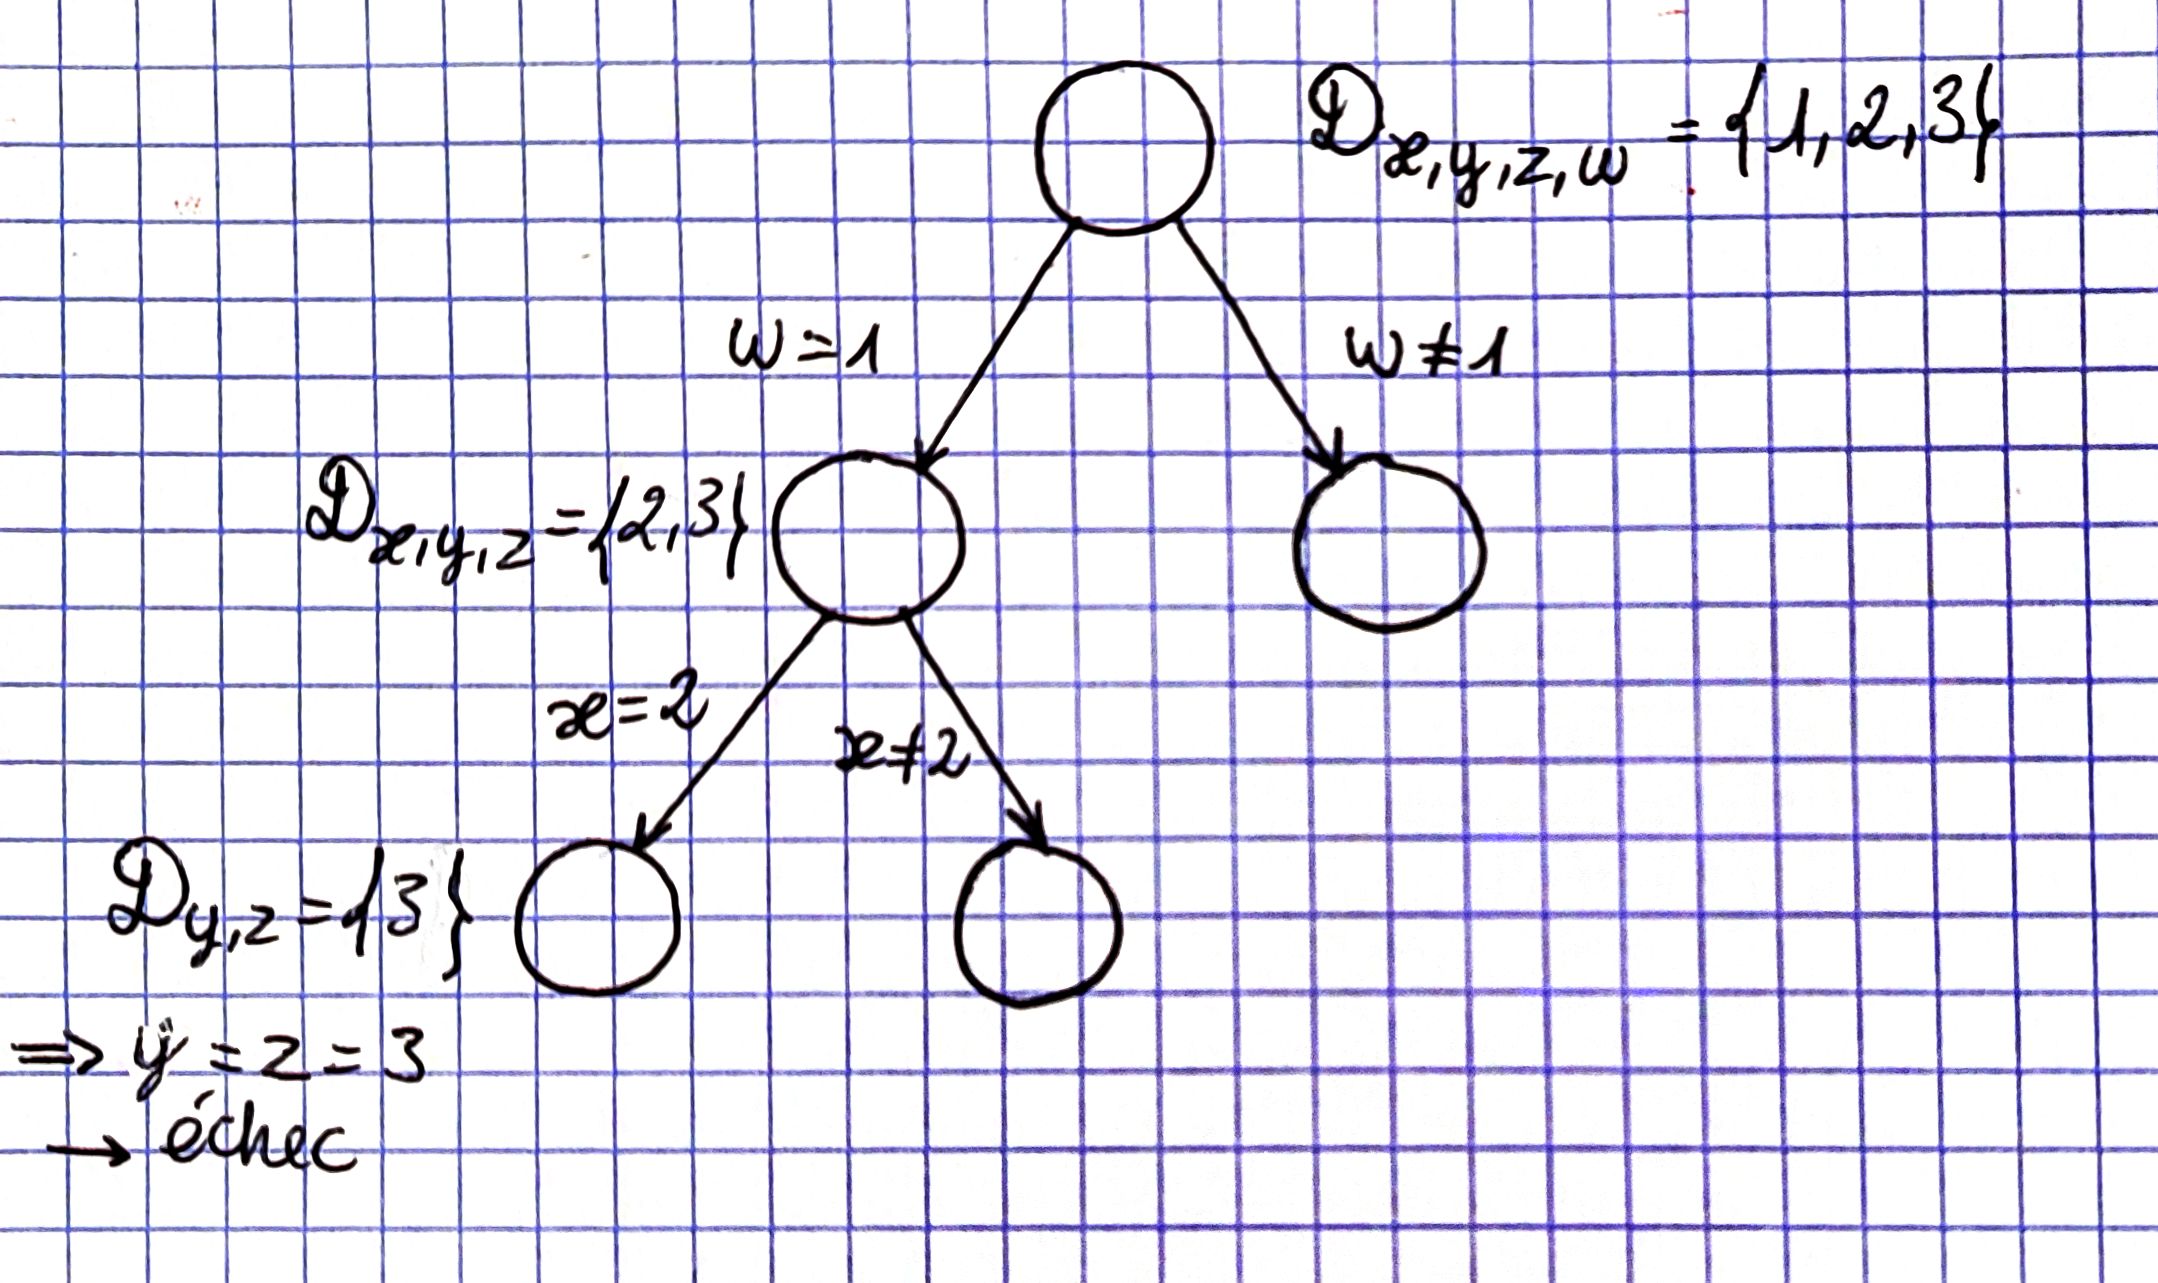 𝒟x,y,z,w = {1,2,3}
w=1
w≠1
𝒟x,y,z = {2,3}
x=2
x≠2
𝒟y,z = {3}
=> y = z = 3
→ échec